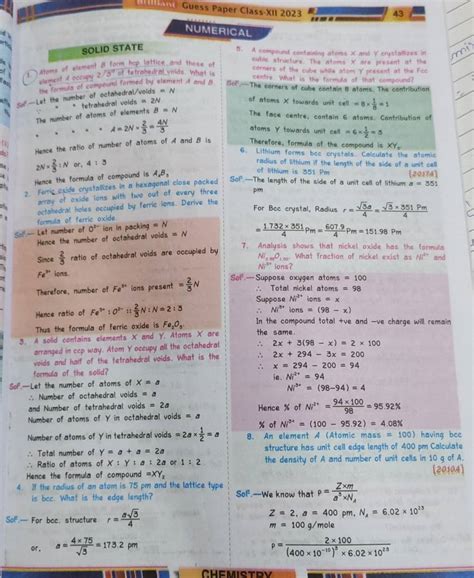 Brilliant Guess Paper Class-XII 2023
43
NUMERICAL
SOLID STATE
1. Atoms of element B form hcp lattice and those of
element A occupy 2/3rd of tetrahedral voids. What is
the formula of compound formed by element A and B.
Solⁿ.— Let the number of octahedral/voids = N
" " tetrahedral voids = 2N
The number of atoms of elements B = N
" " " " A = 2N × 2/3 = 4N/3
Hence the ratio of number of atoms of A and B is
2N × 2/3 : N or, 4 : 3
Hence the formula of compound is A₄B₃
2. Ferric oxide crystallizes in a hexagonal close packed
array of oxide ions with two out of every three
octahedral holes occupied by ferric ions. Derive the
formula of ferric oxide.
Solⁿ.— Let number of O²⁻ ion in packing = N
Hence the number of octahedral voids = N
Since 2/3 ratio of octahedral voids are occupied by
Fe³⁺ ions.
Therefore, number of Fe³⁺ ions present = 2/3 N
Hence ratio of Fe³⁺ : O²⁻ :: 2/3 N : N = 2 : 3
Thus the formula of ferric oxide is Fe₂O₃.
3. A solid contains elements X and Y. Atoms X are
arranged in ccp way. Atom Y occupy all the octahedral
voids and half of the tetrahedral voids. What is the
formula of the solid?
Solⁿ.—Let the number of atoms of X = a
∴ Number of octahedral voids = a
and Number of tetrahedral voids = 2a
Number of atoms of Y in octahedral voids = a
Number of atoms of Y in tetrahedral voids = 2a × 1/2 = a
∴ Total number of Y = a + a = 2a
∴ Ratio of atoms of X : Y : a : 2a or 1 : 2
Hence the formula of compound =XY₂
4. If the radius of an atom is 75 pm and the lattice type
is bcc. What is the edge length?
Solⁿ.— For bcc. structure r = a√3/4
or, a = 4 × 75/√3 = 173.2 pm
5. A compound containing atoms X and Y crystallizes in
cubic structure. The atoms X are present at the
corners of the cube while atom Y present at the Fcc
centre. What is the formula of that compound?
Solⁿ.—The corners of cube contain 8 atoms. The contribution
of atoms X towards unit cell = 8 × 1/8 = 1
The face centre, contain 6 atoms. Contribution of
atoms Y towards unit cell = 6 × 1/2 = 3
Therefore, formula of the compound is XY₃
6. Lithium forms bcc crystals. Calculate the atomic
radius of lithium if the length of the side of a unit cell
of lithium is 351 Pm [2017A]
Solⁿ.—The length of the side of unit cell of lithium a = 351
pm
For Bcc crystal, Radius r = √3a/4 = √3 × 351 Pm/4
= 1.732 × 351/4 Pm = 607.9/4 Pm = 151.98 Pm
7. Analysis shows that nickel oxide has the formula
Ni₀.₉₈O₁.₀₀. What fraction of nickel exist as Ni²⁺ and
Ni³⁺ ions?
Solⁿ.—Suppose oxygen atoms = 100
∴ Total nickel atoms = 98
Suppose Ni²⁺ ions = x
∴ Ni³⁺ ions = (98 − x)
In the compound total +ve and −ve charge will remain
the same.
∴ 2x + 3(98 − x) = 2 × 100
∴ 2x + 294 − 3x = 200
∴ x = 294 − 200 = 94
ie. Ni²⁺ = 94
Ni³⁺ = (98−94) = 4
Hence % of Ni²⁺ = 94 × 100/98 = 95.92%
% of Ni³⁺ = (100 − 95.92) = 4.08%
8. An element A (Atomic mass = 100) having bcc
structure has unit cell edge length of 400 pm Calculate
the density of A and number of unit cells in 10 g of A.
[2010A]
Solⁿ.—We know that ρ = Z×m/a³×Nₐ
Z = 2, a = 400 pm, Nₐ = 6.02 × 10²³
m = 100 g/mole
ρ = 2×100/(400 × 10⁻¹⁰)³ × 6.02 × 10²³
CHEMISTRY